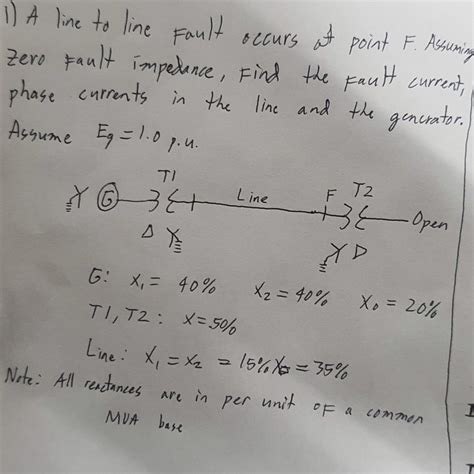 1) A line to line Fault occurs at point F. Assuming
Zero Fault impedance, Find the Fault current,
phase currents in the line and the generator.
Assume Eg = 1.0 p.u.
T1
Line
F T2
G
Open
Δ Y
Y D
G: X1 = 40% X2 = 40% X0 = 20%
T1, T2: X = 50%
Line: X1 = X2 = 15% X0 = 35%
Note: All reactances are in per unit OF a common
MVA base